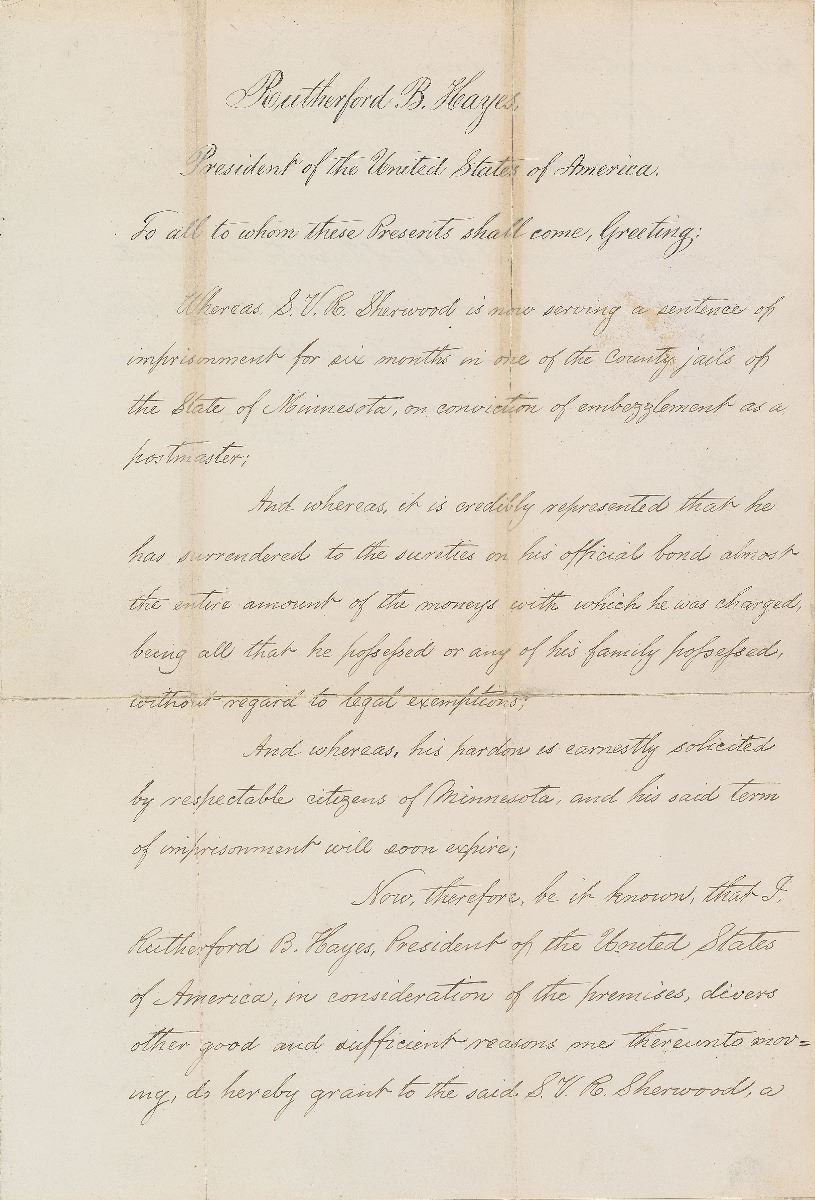 Rutherford B. Hayes,
President of the United States of America.
To all to whom these Presents shall come, Greeting;
Whereas S. V. R. Sherwood is now serving a sentence of
imprisonment for six months in one of the County jails of
the State of Minnesota, on conviction of embezzlement as a
postmaster;
And whereas, it is credibly represented that he
has surrendered to the sureties on his official bond almost
the entire amount of the moneys with which he was charged,
being all that he possessed or any of his family possessed,
without regard to legal exemptions;
And whereas, his pardon is earnestly solicited
by respectable citizens of Minnesota, and his said term
of imprisonment will soon expire;
Now, therefore, be it known, that I,
Rutherford B. Hayes, President of the United States
of America, in consideration of the premises, divers
other good and sufficient reasons me thereunto mov=
ing, do hereby grant to the said S. V. R. Sherwood, a